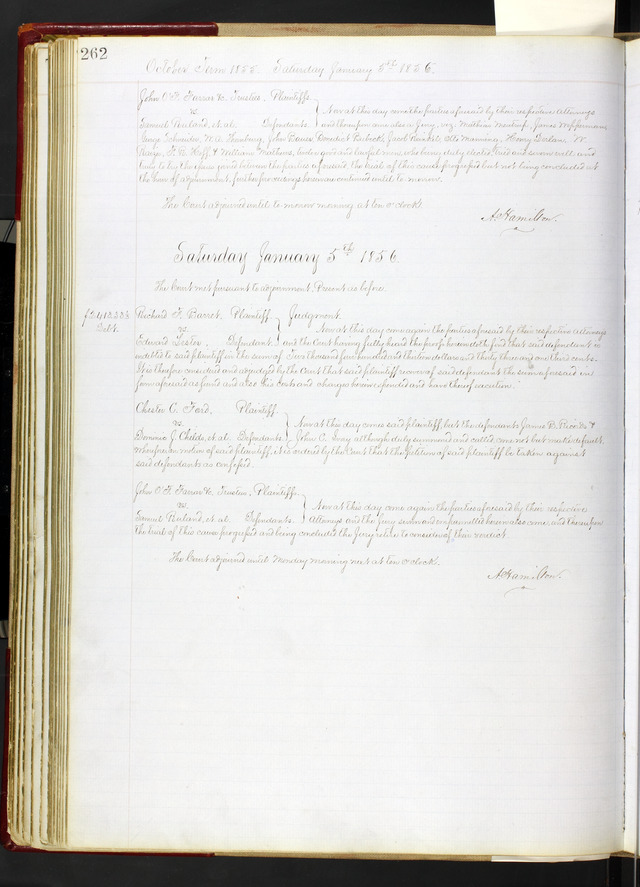 262
October Term 1855. Saturday January 5th 1856.
John O'F. Farrar &c. Trustee. Plaintiffs
vs.
Samuel Ruland, et. al. Defendants
Now at this day come the parties aforesaid by their respective Attorneys
and thereupon comes also a Jury, viz
Henry
William Mathews,
tried and sworn well and
truly to try the issue joined between the parties aforesaid, the trial of this cause progressed but not being concluded at
the hour of adjournment, further proceedings herein are continued until to morrow.
The Court adjourned until to morrow morning at ten o'clock.
A. Hamilton.
Saturday January 5th 1856.
The Court met pursuant to adjournment. Present as before.
Debt.
Richard F. Barret, Plaintiff
vs.
Edward Lester. Defendant
Judgment
Now at this day come again the parties aforesaid by their respective Attorneys
and the Court having fully heard the proofs herein doth find that said defendant is
indebted to said plaintiff in the sum of Two thousand four hundred and thirteen dollars and thirty three and one third cents.
It is therefore considered and adjudged by the Court that said plaintiff recover of said defendant the sum aforesaid in
form aforesaid as found and also his costs and charges herein expended and have thereof execution.
Chester C. Ford. Plaintiff.
vs.
Dominic J. Childs, et. al. Defendants
Now at this day comes said plaintiff, but the defendants James B. &
John C. Gray although duly summoned and called come not but make default,
wherefore on motion of said plaintiff, it is ordered by the Court that the Petition of said plaintiff be taken against
said defendants as confessed.
John O'F. Farrar &c. Trustee, Plaintiffs.
vs.
Samuel Ruland, et. al. Defendants.
Now at this day come again the parties aforesaid by their respective
Attorneys and the Jury sworn and empannelled herein also come, and thereupon
the trial of this cause progressed and being concluded the Jury retire to consider of their verdict
The Court adjourned until Monday morning next at ten o'clock.
A. Hamilton.